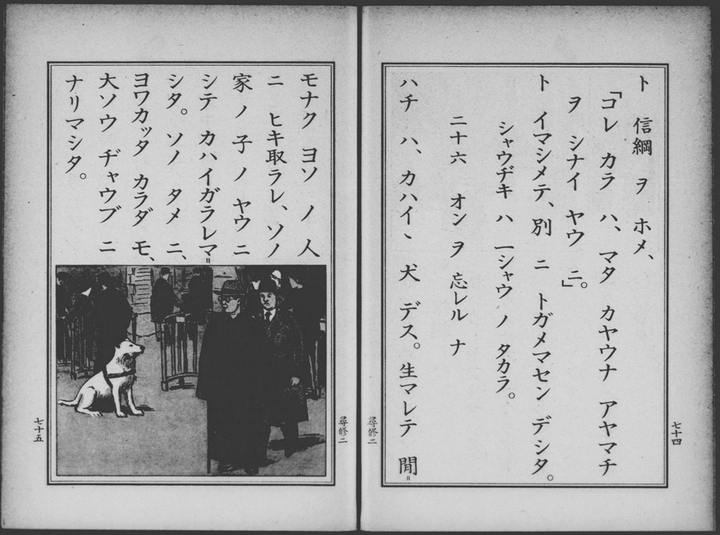 ト 信綱 ヲ ホメ、
「コレ カラ ハ、マタ カヤウナ アヤマチ
ヲ シナイ ヤウ ニ。」
ト イマシメテ、別 ニ トガメマセン デシタ。
シャウヂキ ハ 一シャウ ノ タカラ。
二十六 オン ヲ 忘レル ナ
ハチ ハ、カハイヽ 犬 デス。生マレテ 間〓
七十四
尋修二
モナク ヨソ ノ 人
ニ ヒキ取ラレ、ソノ
家 ノ 子 ノ ヤウ ニ
シテ カハイガラレマ〓
シタ。ソノ タメ ニ、
ヨワカッタ カラダ モ、
大ソウ ヂャウブ ニ
ナリマシタ。
尋修二
七十五